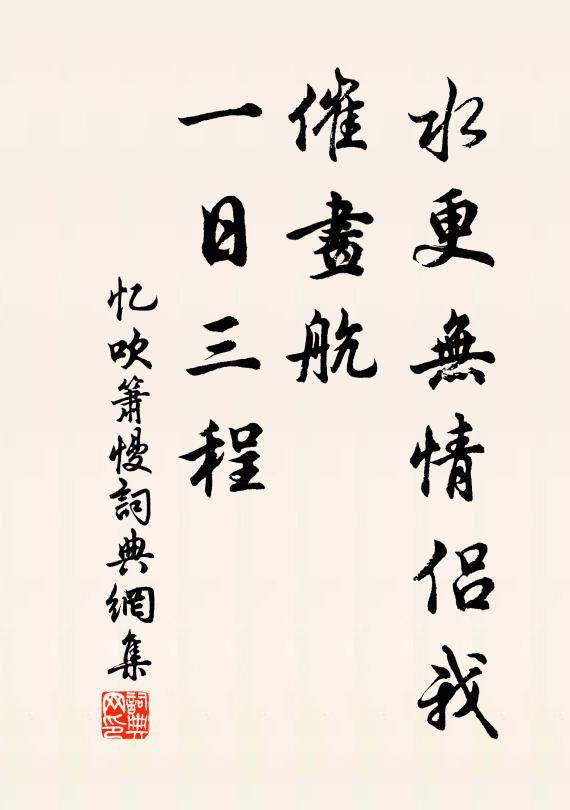 水更無情侣我
催畫航
一日三程
忆吹簫慢詞典網集
詞典
网印